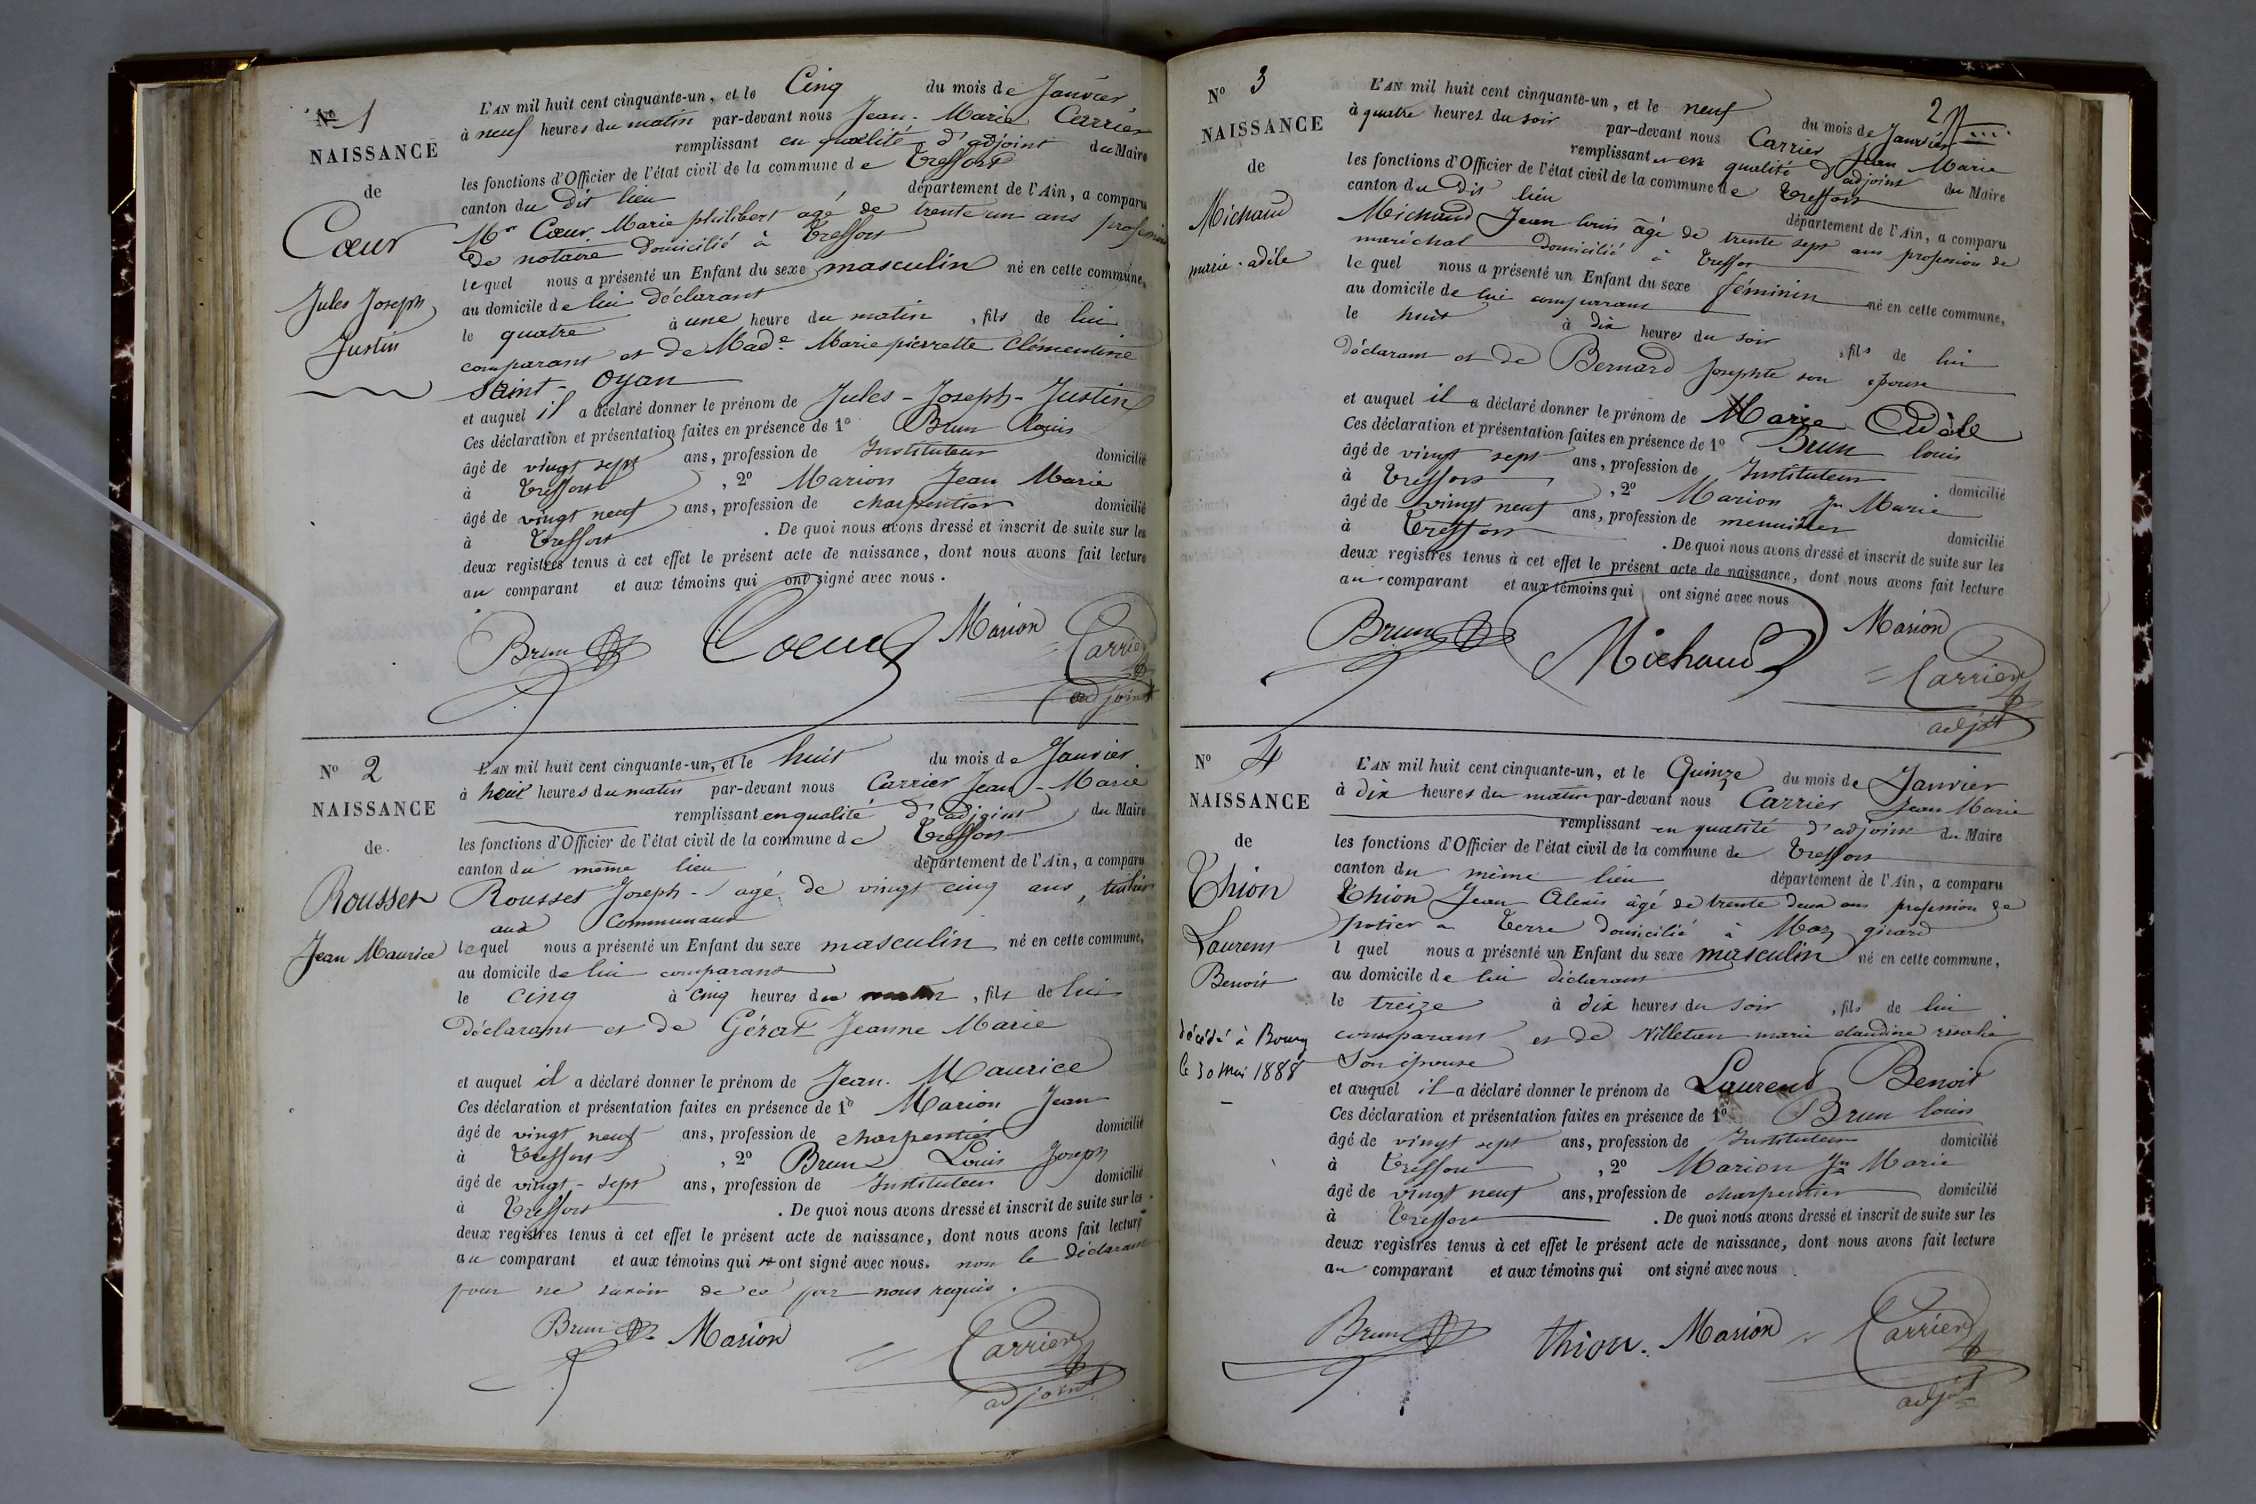 Nº 1
NAISSANCE
de
Cœur
Jules Joseph
Justin
L'AN mil huit cent cinquante-un, et le Cinq du mois de Janvier,
à neuf heures du matin par-devant nous Jean-Marie Carrier
remplissant en qualité d'adjoint du Maire
les fonctions d'Officier de l'état civil de la commune de Treffort
canton du dit lieu département de l'Ain, a comparu
Mr Cœur Marie philibert agé de trente un ans profession
de notaire domicilié à Treffort
lequel nous a présenté un Enfant du sexe masculin né en cette commune,
au domicile de lui déclarant
le quatre à une heure du matin, fils de lui
comparant et de Made Marie pierrette Clémentine
Saint-Oyan
et auquel il a déclaré donner le prénom de Jules-Joseph-Justin
Ces déclaration et présentation faites en présence de 1º Brun Louis
âgé de vingt sept ans, profession de Instituteur domicilié
à Treffort, 2º Marion Jean Marie
âgé de vingt neuf ans, profession de charpentier domicilié
à Treffort. De quoi nous avons dressé et inscrit de suite sur les
deux registres tenus à cet effet le présent acte de naissance, dont nous avons fait lecture
au comparant et aux témoins qui ont signé avec nous.
Brun Coeur Marion Carrier
adjoint
Nº 2
NAISSANCE
de
Rousset
Jean Maurice
L'AN mil huit cent cinquante-un, et le huit du mois de Janvier
à huit heures du matin par-devant nous Carrier Jean-Marie
remplissant en qualité d'adjoint du Maire
les fonctions d'Officier de l'état civil de la commune de Treffort
canton du même lieu département de l'Ain, a comparu
Rousset Joseph agé de vingt cinq ans,
aux Communaux
lequel nous a présenté un Enfant du sexe masculin né en cette commune,
au domicile de lui comparant
le cinq à cinq heures du matin, fils de lui
déclarant et de Gérat Jeanne Marie
et auquel il a déclaré donner le prénom de Jean-Maurice
Ces déclaration et présentation faites en présence de 1º Marion Jean
âgé de vingt neuf ans, profession de charpentier domicilié
à Treffort, 2º Brun Louis Joseph
âgé de vingt-sept ans, profession de Instituteur domicilié
à Treffort. De quoi nous avons dressé et inscrit de suite sur les
deux registres tenus à cet effet le présent acte de naissance, dont nous avons fait lecture
au comparant et aux témoins qui ont signé avec nous. non le déclarant
pour ne savoir de ce par nous requis.
Brun Marion Carrier
adjoint
2
Nº 3
NAISSANCE
de
Michaud
marie-adèle
L'AN mil huit cent cinquante-un, et le neuf du mois de Janvier
à quatre heures du soir par-devant nous Carrier Jean Marie
remplissant en qualité d'adjoint du Maire
les fonctions d'Officier de l'état civil de la commune de Treffort
canton du Dit lieu département de l'Ain, a comparu
Michaud Jean louis âgé de trente sept ans profession de
maréchal domicilié à Treffort
lequel nous a présenté un Enfant du sexe féminin né en cette commune,
au domicile de lui comparant
le huit à dix heures du soir, fils de lui
déclarant et de Bernard Josephte son épouse
et auquel il a déclaré donner le prénom de Marie Adèle
Ces déclaration et présentation faites en présence de 1º Brun louis
âgé de vingt sept ans, profession de Instituteur domicilié
à Treffort, 2º Marion Jn Marie
âgé de vingt neuf ans, profession de menuisier domicilié
à Treffort. De quoi nous avons dressé et inscrit de suite sur les
deux registres tenus à cet effet le présent acte de naissance, dont nous avons fait lecture
au comparant et aux témoins qui ont signé avec nous
Brun Michaud Marion Carrier
adjt
Nº 4
NAISSANCE
de
Thion
Laurent
Benoit
décédé à Bourg
le 30 mai 1888
L'AN mil huit cent cinquante-un, et le Quinze du mois de Janvier
à dix heures du matin par-devant nous Carrier Jean Marie
remplissant en qualité d'adjoint du Maire
les fonctions d'Officier de l'état civil de la commune de Treffort
canton du même lieu département de l'Ain, a comparu
Thion Jean Alexis âgé de trente deux ans profession de
potier en Terre domicilié à Mas girard
l quel nous a présenté un Enfant du sexe masculin né en cette commune,
au domicile de lui déclarant
le treize à dix heures du soir, fils de lui
comparant et de marie claudine
Son épouse
et auquel il a déclaré donner le prénom de Laurent Benoit
Ces déclaration et présentation faites en présence de 1º Brun louis
âgé de vingt sept ans, profession de Instituteur domicilié
à Treffort, 2º Marion Jn Marie
âgé de vingt neuf ans, profession de charpentier domicilié
à Treffort. De quoi nous avons dressé et inscrit de suite sur les
deux registres tenus à cet effet le présent acte de naissance, dont nous avons fait lecture
au comparant et aux témoins qui ont signé avec nous.
Brun thion. Marion Carrier
adjt